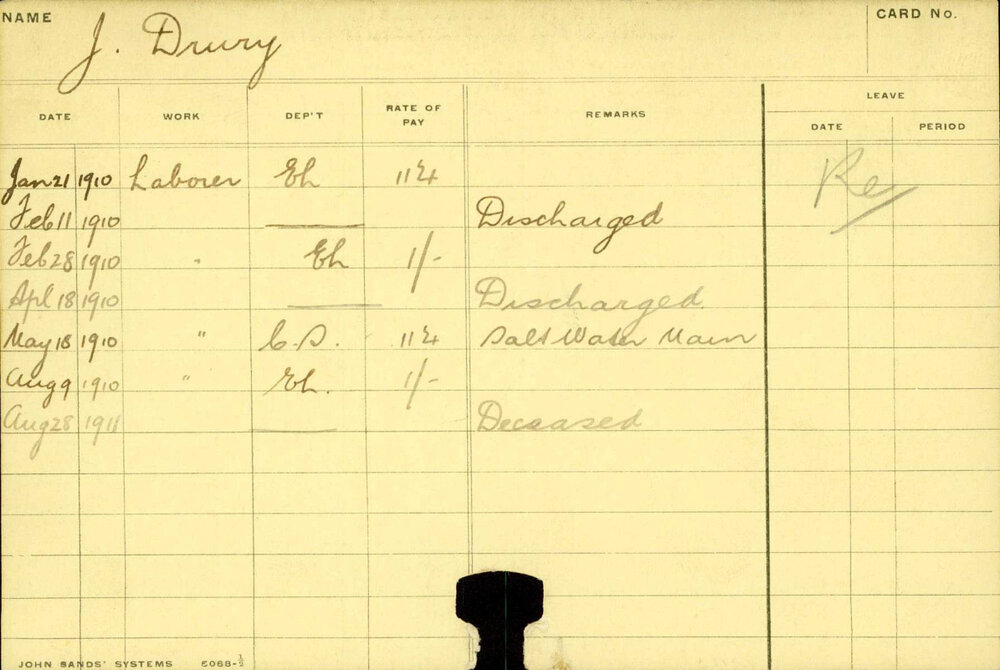 NAME J. Drury CARD No.
LEAVE
DATE WORK DEP'T RATE OF PAY REMARKS DATE PERIOD
Jan 21 1910 Laborer Eh 11¼ Re
Feb 11 1910 Discharged
Feb 28 1910 " Eh 1/-
Apl 18 1910 Discharged
May 18 1910 " C.S. 11¼ Salt Water Main
Aug 9 1910 " Eh. 1/-
Aug 28 1911 Deceased
JOHN SANDS' SYSTEMS 5068-½